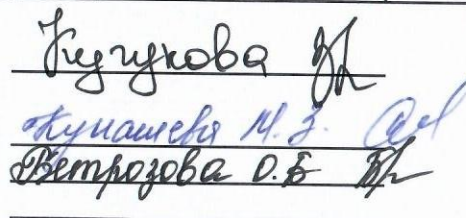 Кучукова
Кунашева М. З.
Ветрозова О.Б